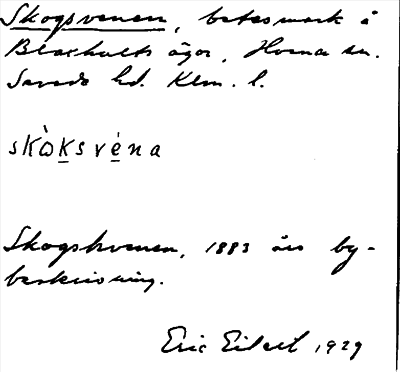 Skogsvenen, betesmark å
Bläckhults ägor, Horna sn.
Sevede hd. Klm. l.
skò̱ksvė̱na
Skogshvenen, 1883 års by-
beskrivning.
Eric Eilert 1929